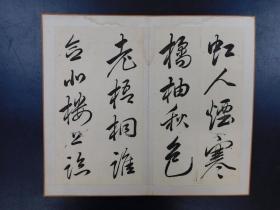 虹人煙寒
橘柚秋色
老梧桐誰
念北樓上臨